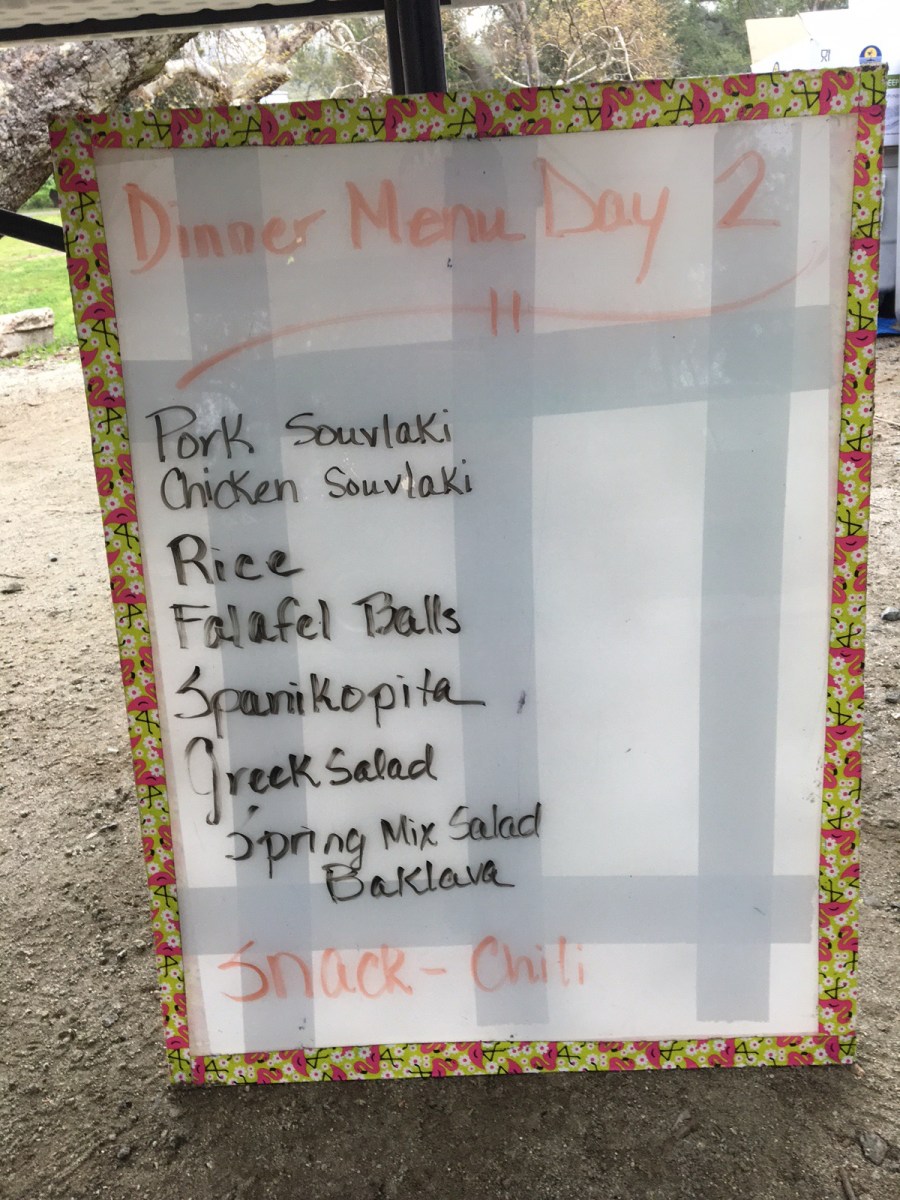 Dinner Menu Day 2
Pork Souvlaki
Chicken Souvlaki
Rice
Falafel Balls
Spanikopita
Greek Salad
Spring Mix Salad
Baklava
Snack - Chili